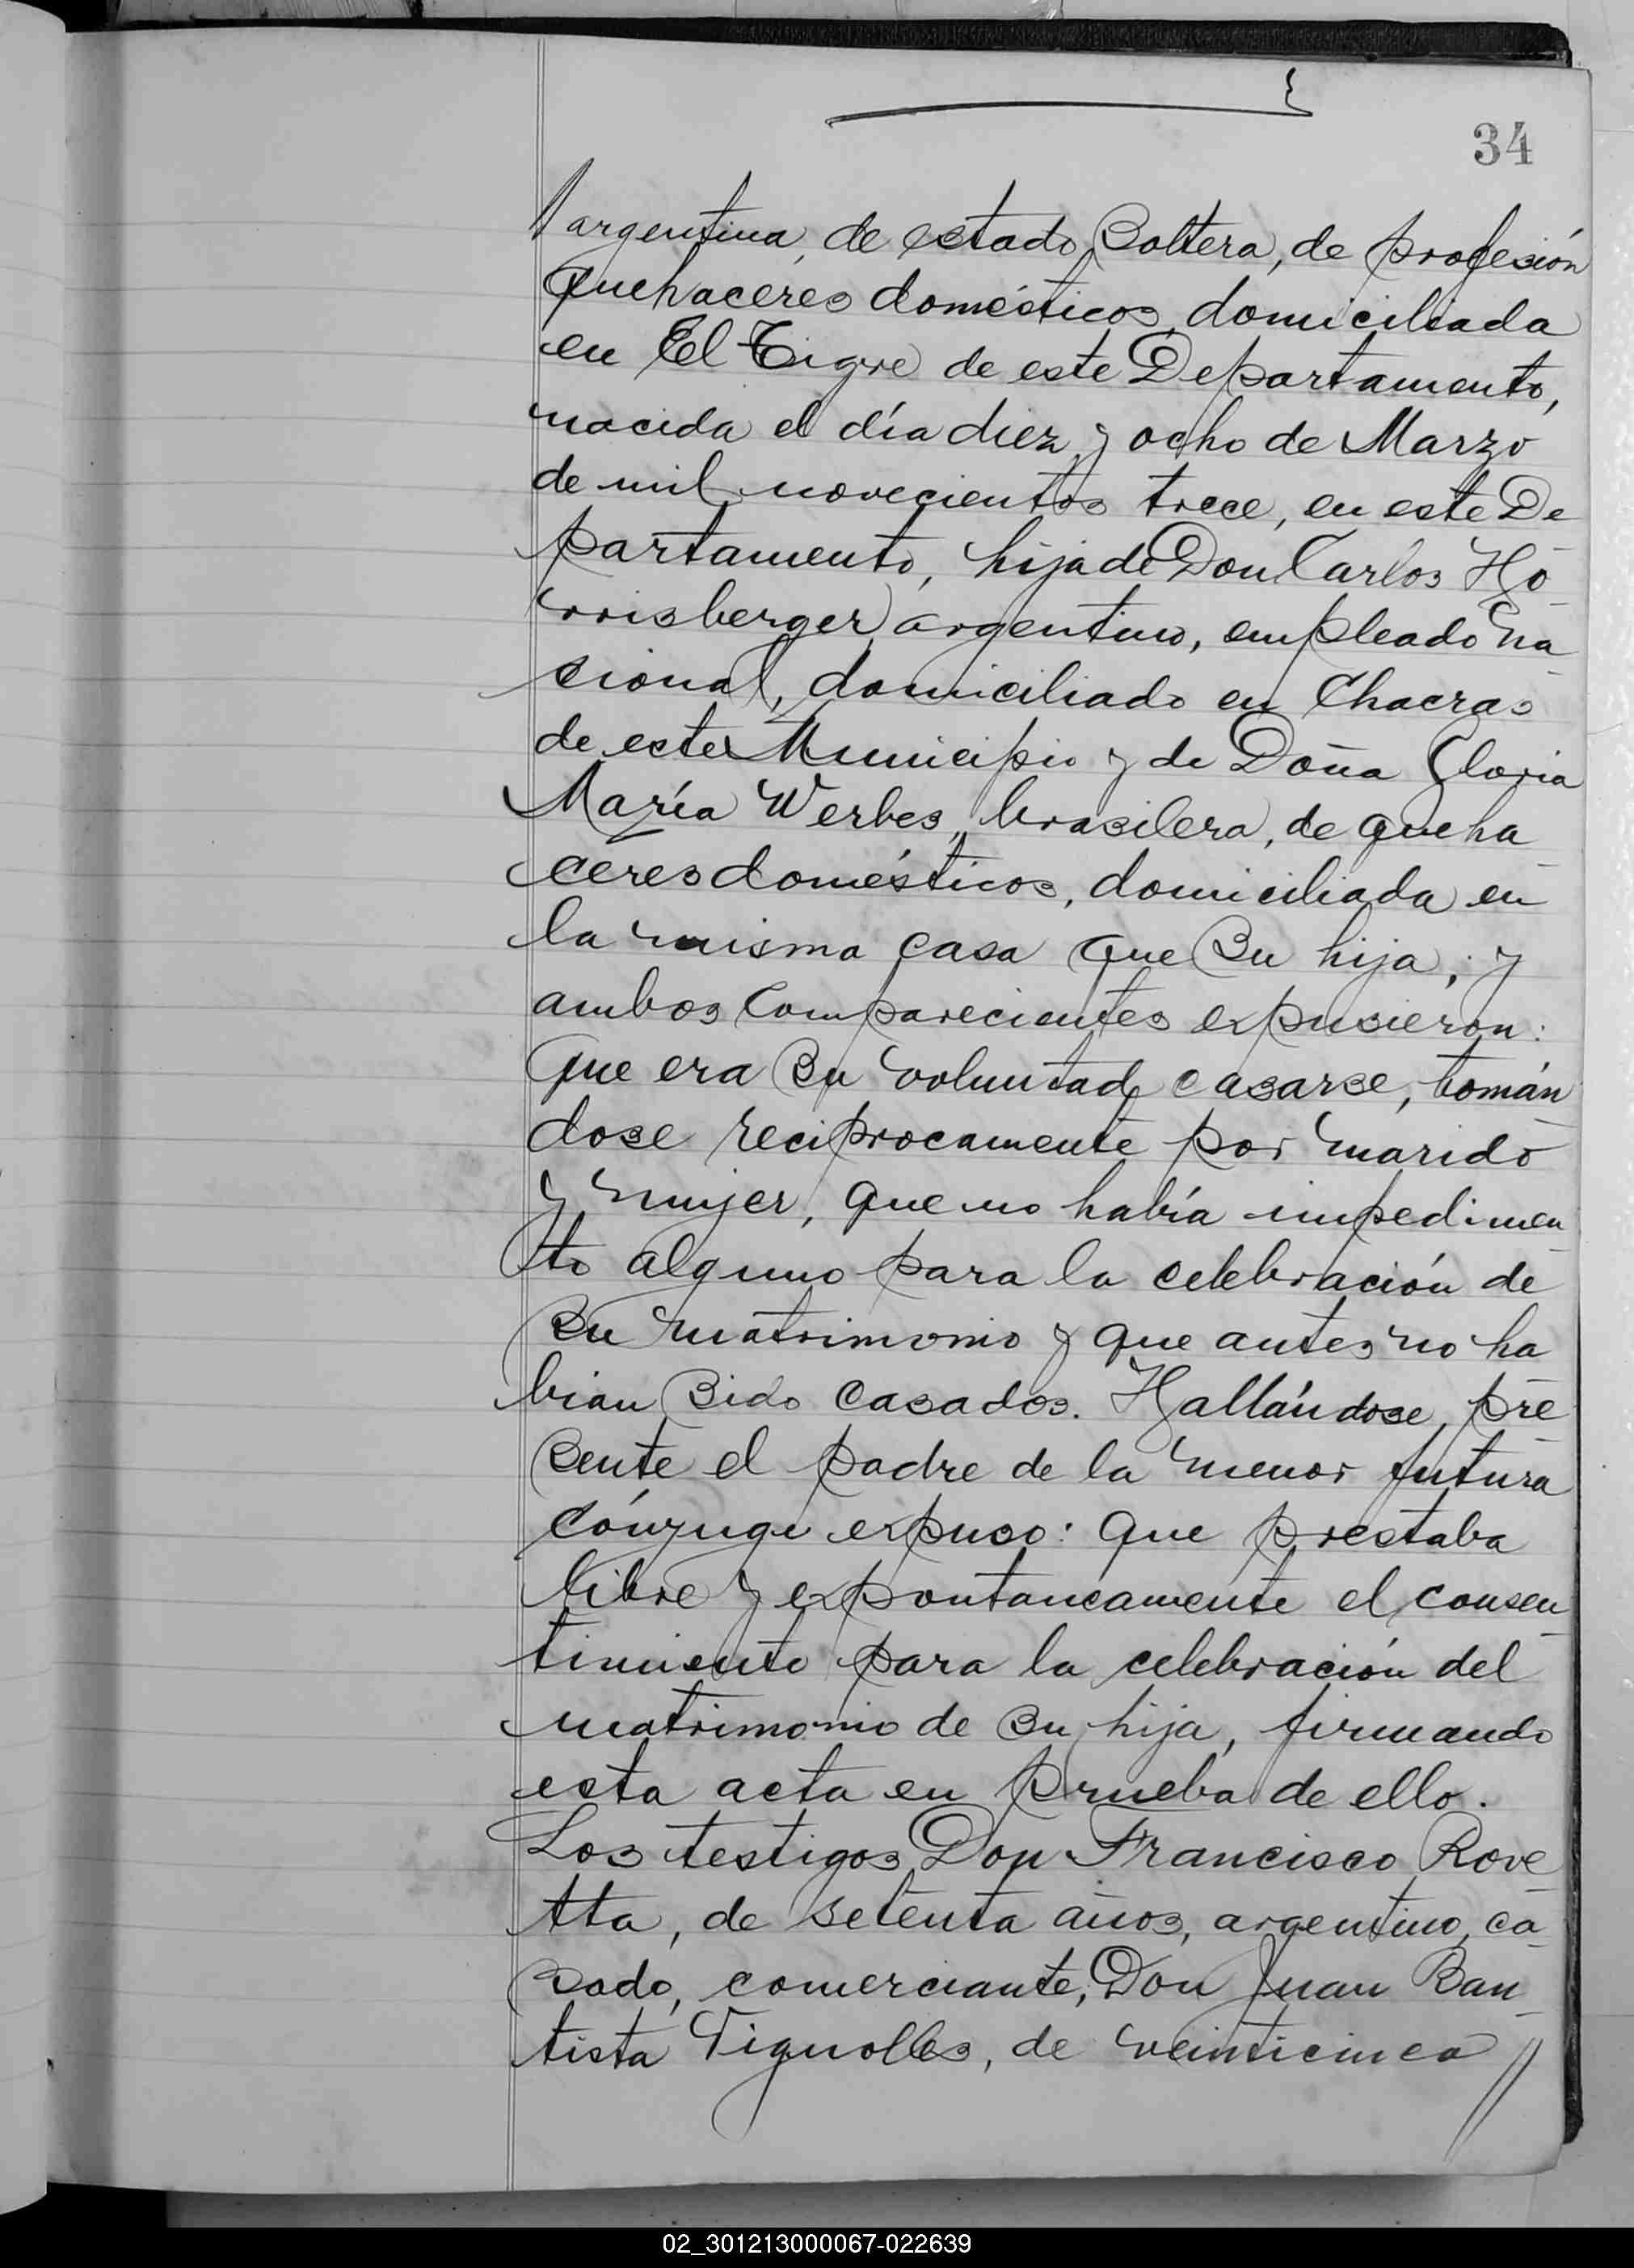 34
argentina, de estado soltera, de profesión
quehaceres domésticos, domiciliada
en El Tigre de este Departamento,
nacida el día diez y ocho de Marzo
de mil novecientos trece, en este De
partamento, hija de Don Carlos Ho-
rrisberger, argentino, empleado na-
cional, domiciliado en Chacras
de este Municipio y de Doña Gloria
María Werbes, brasilera, de queha-
ceres domésticos, domiciliada en
la misma casa que su hija; y
ambos comparecientes expusieron:
que era su voluntad casarse, tomán
dose reciprocamente por marido
y mujer, que no había impedimen-
to alguno para la celebración de
su matrimonio y que antes no ha
bian sido casados. Hallándose, pre-
sente el padre de la menor futura
cónyuge expuso: que prestaba
libre y expontaneamente el consen-
timiento para la celebración del
matrimonio de su hija, firmando
esta acta en prueba de ello.
Los testigos Don Francisco Rove-
tta, de setenta años, argentino, ca-
sado, comerciante, Don Juan Bau-
tista Vignolles, de veinticinco //
02_301213000067-022639